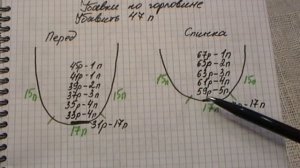 Убавки по горловине
Убавить 47 п
Перед
45р-1п
41р-1п
39р-2п
37р-3п
35р-4п
33р-4п
31р-17п
15п
15п
17п
Спинка
67р-1п
65р-2п
63р-3п
61р-4п
59р-5п
р-17п
15п
15п
17п